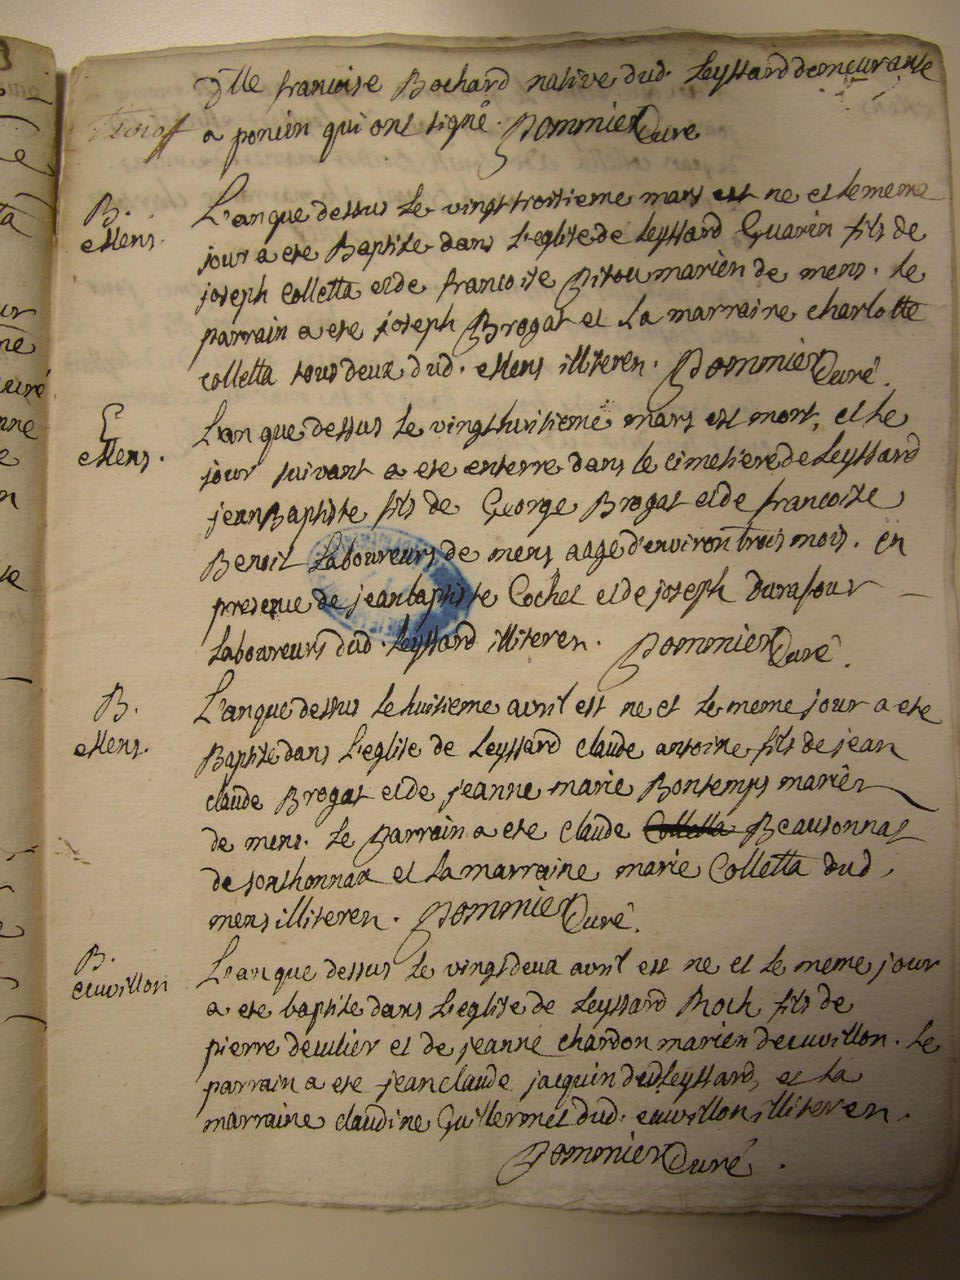 dlle francoise Bochard native dud. Leyssard demeurante
a poncin qui ont signé. Pommier Curé
B.
Mens.
L'an que dessus Le vingt troisieme mars est ne et le meme
jour a ete Baptise dans L'eglise de Leyssard Guarin fils de
joseph Colletta et de francoise Pitou mariés de mens. Le
parrain a ete joseph Brogat et La marraine charlotte
colletta tous deux dud. Mens illiteres. Pommier Curé.
E
Mens.
L'an que dessus Le vingt huitieme mars est mort, et Le
jour suivant a ete enterre dans le cimetiere de Leyssard
jean Baptiste fils de George Brogat et de francoise
Benoit Laboureurs de mens aagé d'environ trois mois. En
presence de jean baptiste Cochet et de joseph durafour
Laboureurs dud. Leyssard illiteres. Pommier Curé.
B.
Mens.
L'an que dessus Le huitieme avril est ne et Le meme jour a ete
Baptise dans L'eglise de Leyssard claude antoine fils de jean
claude Brogat et de jeanne marie Bontemps mariés
de mens. Le Parrain a ete claude Colletta Beausonnat
de sonthonnax et La marraine marie Colletta dud.
mens illiteres. Pommier Curé.
B.
cuvillon
L'an que dessus Le vingt deux avril est ne et Le meme jour
a ete baptise dans L'eglise de Leyssard Roch fils de
pierre deculier et de jeanne chardon mariés de cuvillon. Le
parrain a ete jean claude jacquin dud Leyssard, et La
marraine claudine Guillermet dud. cuvillon illiteres.
Pommier Curé.